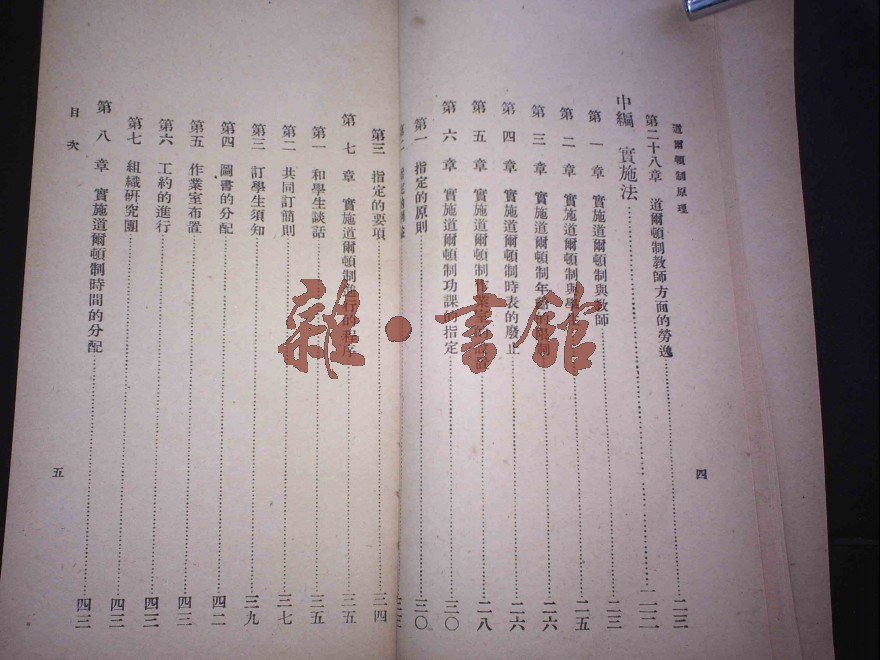 道爾頓制原理
第二十八章 道爾頓制教師方面的勞逸…………二三
中編 實施法…………二二
第一章 實施道爾頓制與教師…………二三
第二章 實施道爾頓制與學…………二五
第三章 實施道爾頓制年…………二六
第四章 實施道爾頓制時表的廢止…………二六
第五章 實施道爾頓制作業室…………二八
第六章 實施道爾頓制功課的指定…………三〇
四
第一 指定的原則…………三〇
第三 指定的要項…………三四
第七章 實施道爾頓制進行的程序…………三五
第一 和學生談話…………三五
第二 共同訂簡則…………三七
第三 訂學生須知…………三九
第四 圖書的分配…………四二
第五 作業室布置…………四三
第六 工約的進行…………四三
第七 組織研究團…………四三
第八章 實施道爾頓制時間的分配…………四三
目次
五
雜·書館